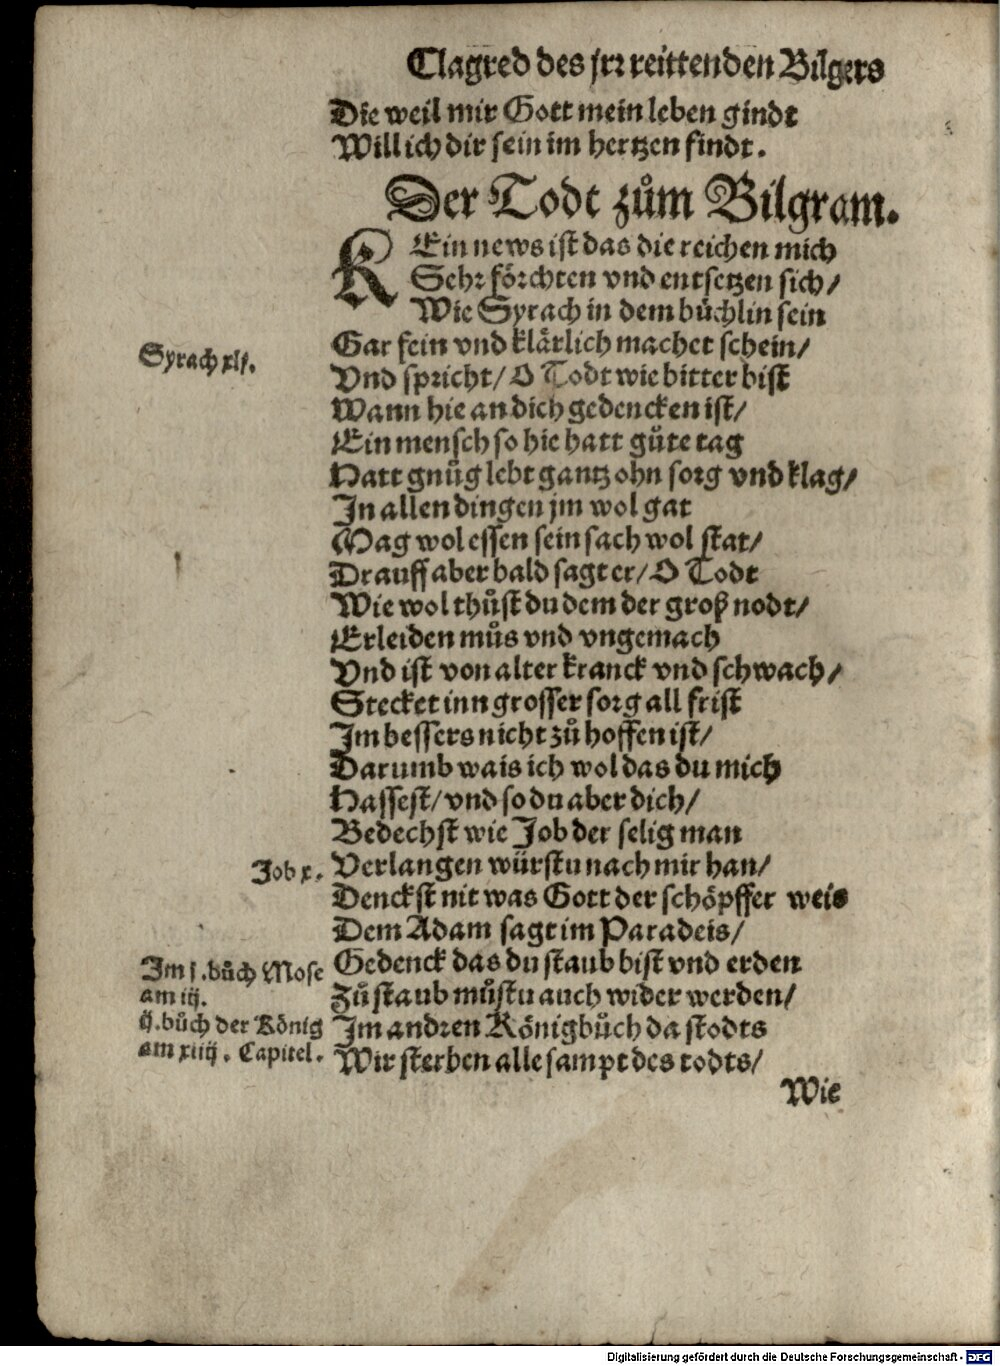 Clagred des jrr reittenden Bilgers
Die weil mir Gott mein leben gindt
Will ich dir sein im hertzen findt.
Der Todt zům Bilgram.
KEin news ist das die reichen mich
Sehr förchten vnd entsetzen sich/
Wie Syrach in dem büchlin sein
Syrach xlj.
Gar fein vnd klärlich machet schein/
Vnd spricht/ O Todt wie bitter bist
Wann hie an dich gedencken ist/
Ein mensch so hie hatt gůte tag
Hatt gnůg lebt gantz ohn sorg vnd klag/
In allen dingen jm wol gat
Mag wol essen sein sach wol stat/
Drauff aber bald sagt er/ O Todt
Wie wol thůst du dem der groß nodt/
Erleiden můs vnd vngemach
Vnd ist von alter kranck vnd schwach/
Stecket inn grosser sorg all frist
Im bessers nicht zů hoffen ist/
Darumb wais ich wol das du mich
Hassest/ vnd so du aber dich/
Bedechst wie Job der selig man
Job x.
Verlangen würstu nach mir han/
Denckst nit was Gott der schöpffer weis
Dem Adam sagt im Paradeis/
Im j. bůch Mose
am iij.
Gedenck das du staub bist vnd erden
Zů staub můstu auch wider werden/
ij. bůch der König
am xiiij. Capitel.
Im andren Königbůch da stodts
Wir sterben alle sampt des todts/
Wie
Digitalisierung gefördert durch die Deutsche Forschungsgemeinschaft - DFG